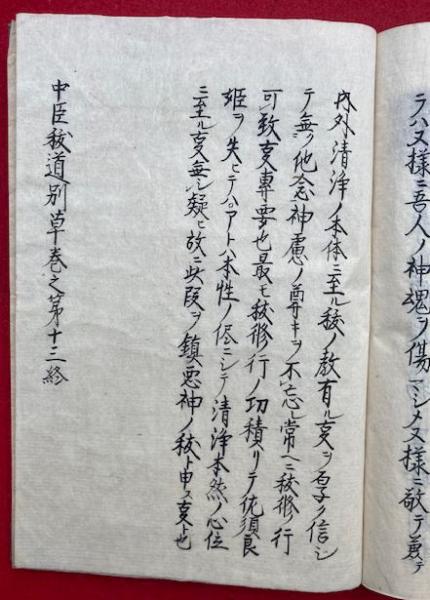 ラハ又様ニ吾人ノ神魂ヲ傷マシメ又様ニ敬テ
内外清浄ノ本体ニ至ル秡ノ教有ル支ヲ厚ク信シ
テ無ク他念神慮ノ尊キヲ不忘レ常ヘニ秡修行
可致支専要也最モ秡修行ノ功積リテ佐須良
姫ヲ失ヒテハアトハ本性ノ侭ミシテ清浄本然ノ心位
ニ至ル支無シ疑ヒ故ニ此段ヲ鎮悪神ノ秡ト申ス支ト也
中臣秡道別草巻之第十三終